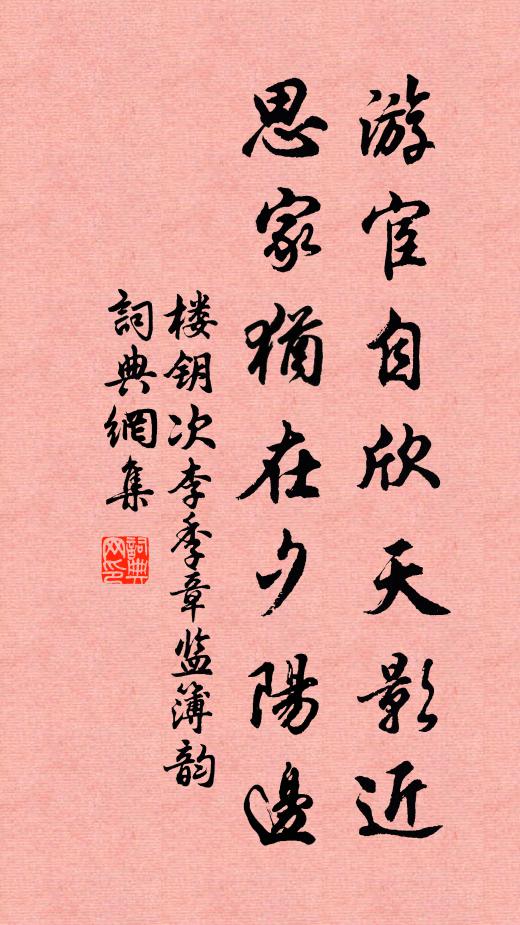 游宦自欣天影近
思家猶在夕陽邊
楼钥次李季章监簿韵
詞典網集
詞典網印